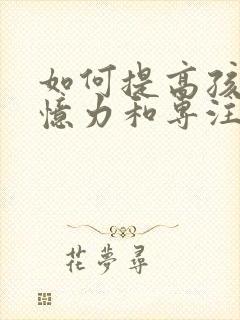 如何提高孩
憶力和專注
花夢尋